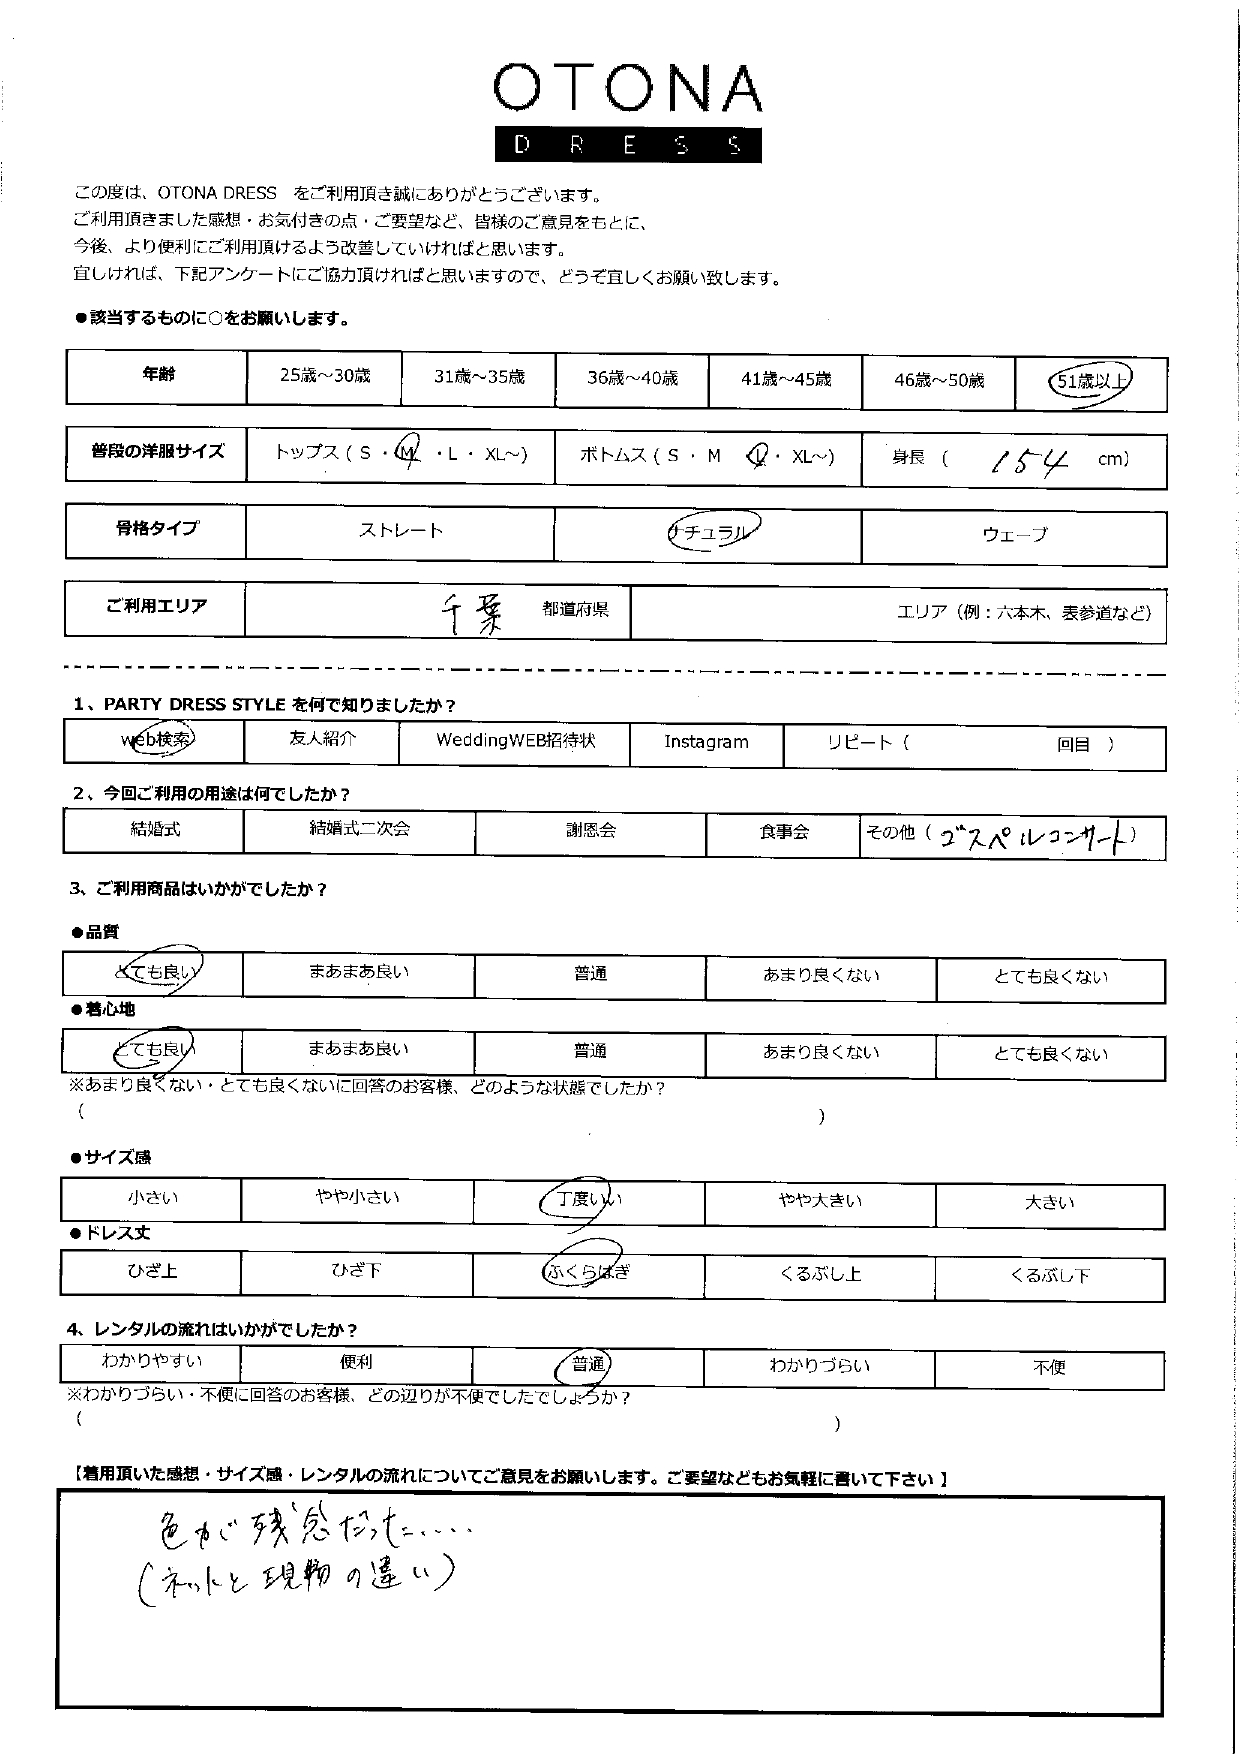 OTONA
DRESS
この度は、OTONA DRESS　をご利用頂き誠にありがとうございます。
ご利用頂きました感想・お気付きの点・ご要望など、皆様のご意見をもとに、
今後、より便利にご利用頂けるよう改善していければと思います。
宜しければ、下記アンケートにご協力頂ければと思いますので、どうぞ宜しくお願い致します。
●該当するものに○をお願いします。
年齢 25歳～30歳 31歳～35歳 36歳～40歳 41歳～45歳 46歳～50歳 51歳以上
普段の洋服サイズ トップス ( S ・ M ・ L ・ XL～) ボトムス ( S ・ M L ・ XL～) 身長 ( 154 cm)
骨格タイプ ストレート ナチュラル ウェーブ
ご利用エリア 千葉 都道府県 エリア（例：六本木、表参道など）
1、PARTY DRESS STYLE を何で知りましたか？
web検索 友人紹介 WeddingWEB招待状 Instagram リピート（ 回目 ）
2、今回ご利用の用途は何でしたか？
結婚式 結婚式二次会 謝恩会 食事会 その他（ ゴスペルコンサート）
3、ご利用商品はいかがでしたか？
●品質
とても良い まあまあ良い 普通 あまり良くない とても良くない
●着心地
とても良い まあまあ良い 普通 あまり良くない とても良くない
※あまり良くない・とても良くないに回答のお客様、どのような状態でしたか？
( )
●サイズ感
小さい やや小さい 丁度いい やや大きい 大きい
●ドレス丈
ひざ上 ひざ下 ふくらはぎ くるぶし上 くるぶし下
4、レンタルの流れはいかがでしたか？
わかりやすい 便利 普通 わかりづらい 不便
※わかりづらい・不便に回答のお客様、どの辺りが不便でしたでしょうか？
( )
【着用頂いた感想・サイズ感・レンタルの流れについてご意見をお願いします。ご要望などもお気軽に書いて下さい 】
色が残念だった‥‥
（ネットと現物の違い）